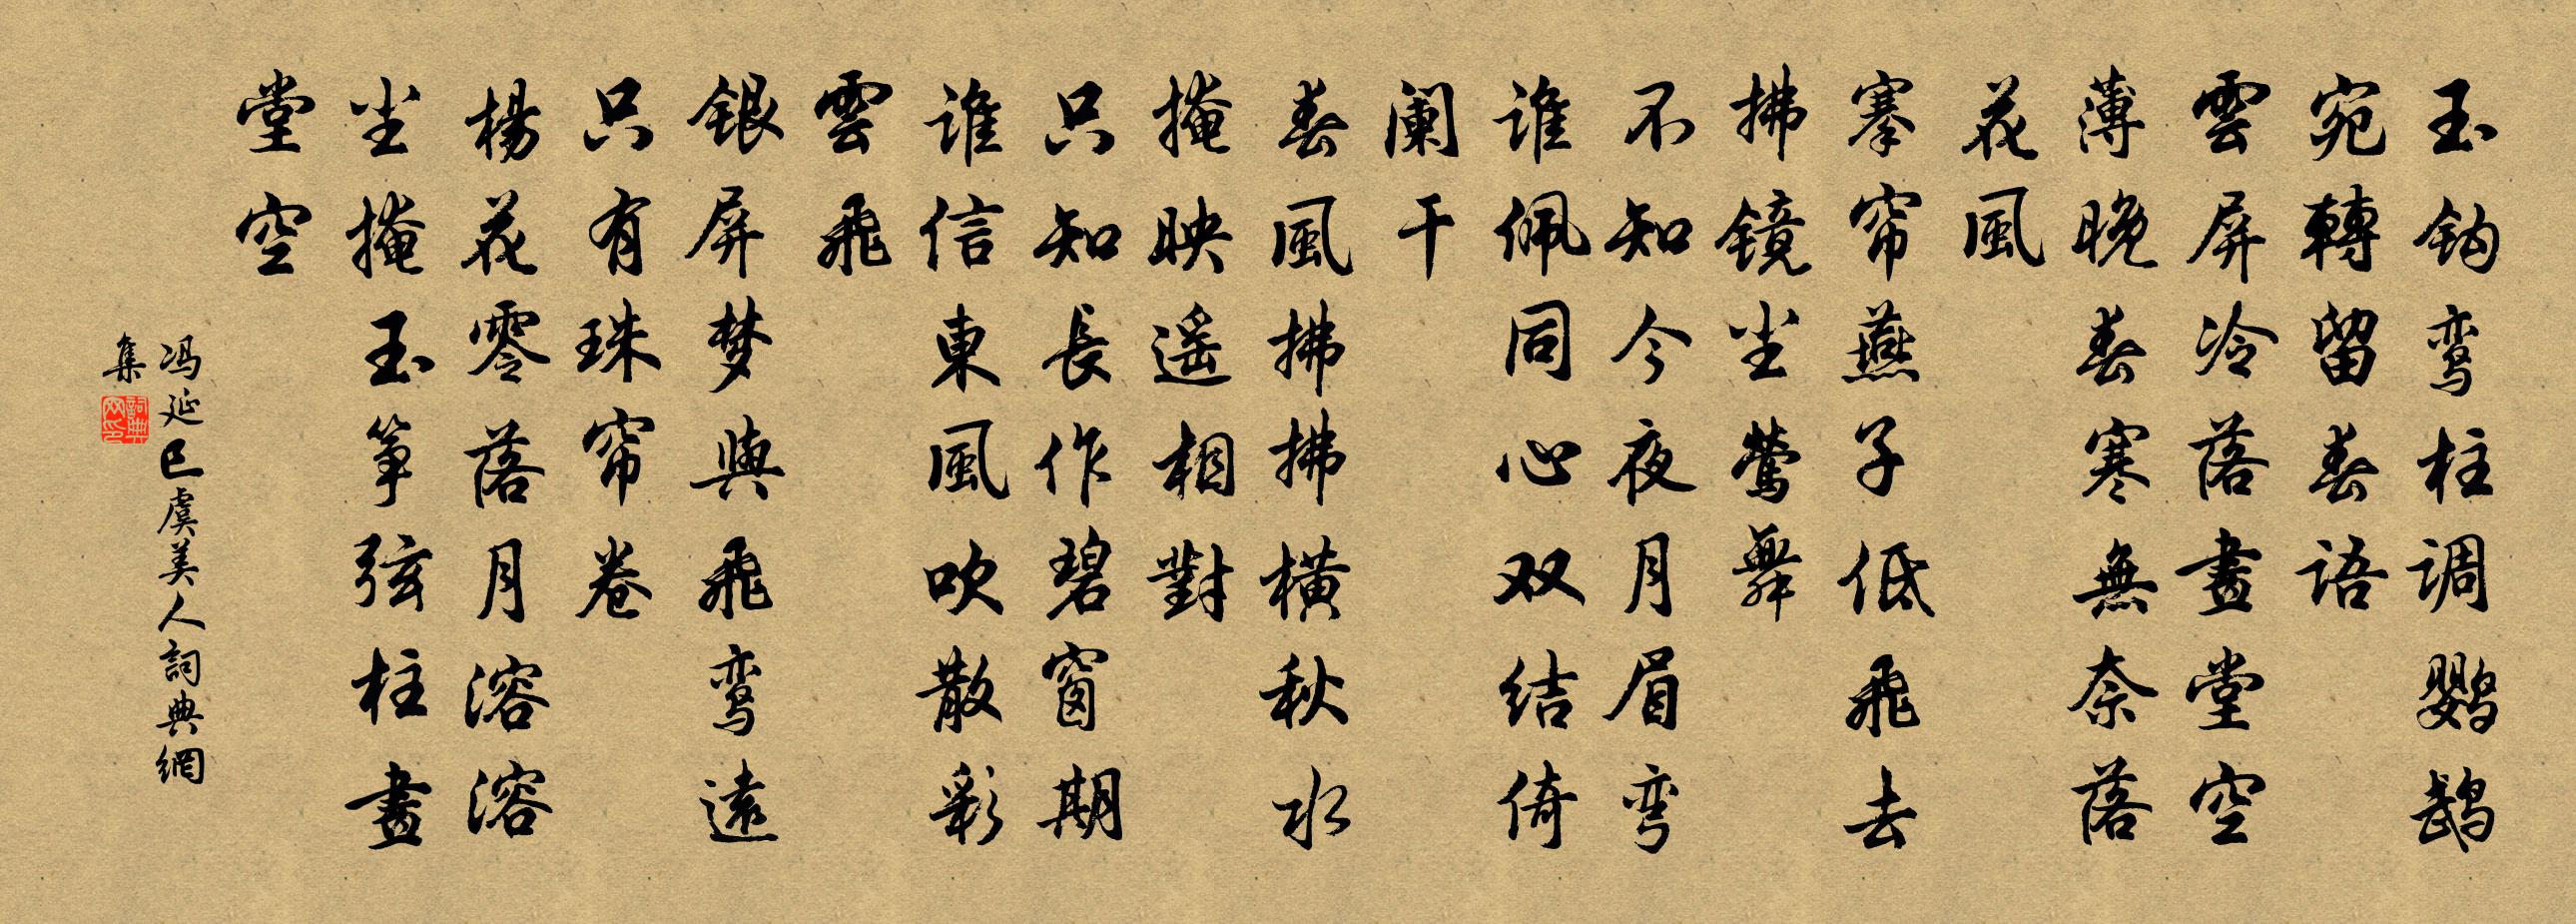 玉钩鸾柱调鹦鹉
宛轉留春语
雲屏冷落畫堂空
薄晚春寒無奈落
花風
搴帘燕子低飛去
拂镜尘莺舞
不知今夜月眉弯
谁佩同心双结倚
阑干
春風拂拂横秋水
掩映遥相對
只知長作碧窗期
谁信東風吹散彩
雲飛
银屏梦與飛鸾遠
只有珠帘卷
楊花零落月溶溶
尘掩玉筝弦柱畫
堂空
冯延巳虞美人詞典網
集
詞典
网印